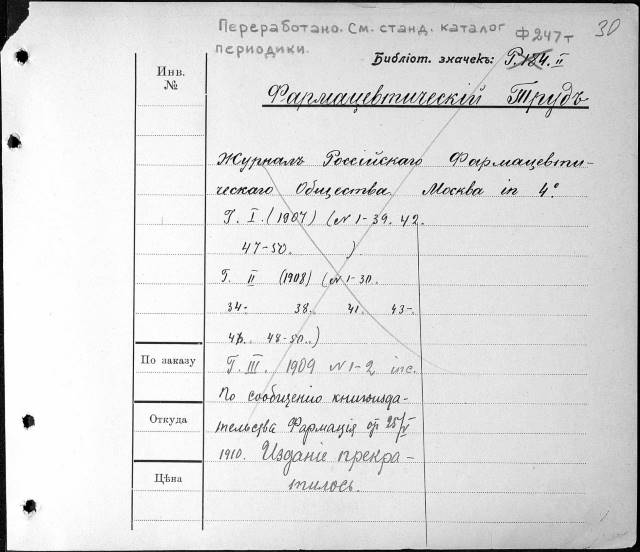 Переработано. См. станд. каталог
периодики.
Ф 247т
30
Библіот. значекъ: Р. 184. II
Инв.
№
Фармацевтическій Трудъ
Журналъ Россійскаго Фармацевти-
ческаго Общества. Москва in 4°.
Г. I. (1907) (N 1-39. 42.
47-50. )
Г. II (1908) (N 1-30.
34- 38. 41. 43-
46. 48-50..)
По заказу
Г. III. 1909 N 1-2 inc.
По сообщенію книгоизда-
Откуда
тельства Фармація отъ 25/V
1910. Изданіе прекра-
тилось.
Цѣна